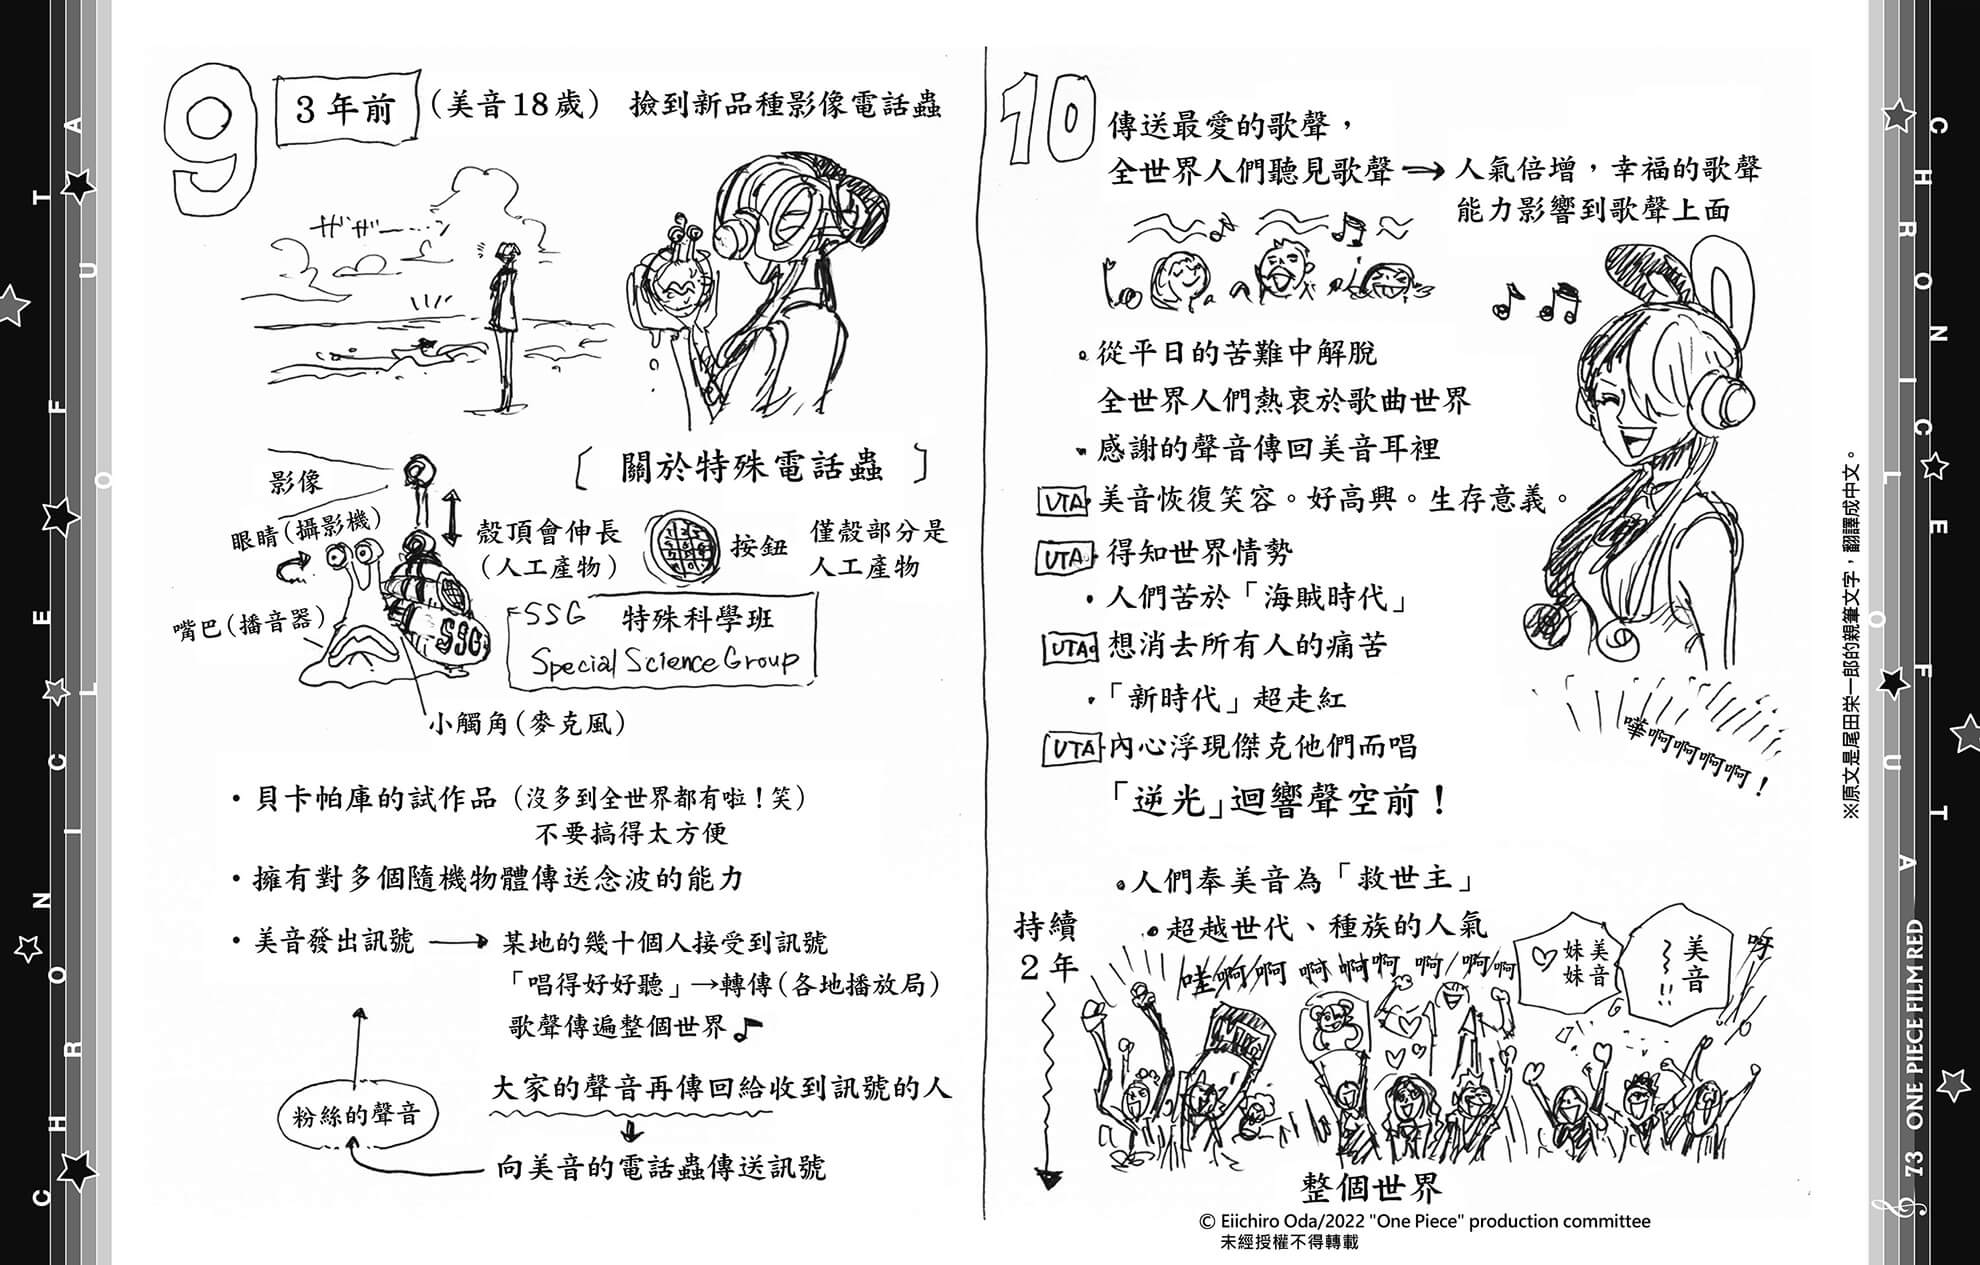 CHRONICLE OF UTA
9
3年前
（美音18歲） 撿到新品種影像電話蟲
ザザー…ン
〔 關於特殊電話蟲 〕
影像
眼睛（攝影機）
嘴巴（播音器）
殼頂會伸長
（人工產物）
按鈕
僅殼部分是
人工產物
SSG
SSG 特殊科學班
Special Science Group
小觸角（麥克風）
・貝卡帕庫的試作品（沒多到全世界都有啦！笑）
不要搞得太方便
・擁有對多個隨機物體傳送念波的能力
・美音發出訊號 → 某地的幾十個人接受到訊號
「唱得好好聽」→轉傳（各地播放局）
歌聲傳遍整個世界♪
大家的聲音再傳回給收到訊號的人
↓
向美音的電話蟲傳送訊號
粉絲的聲音
10
傳送最愛的歌聲，
全世界人們聽見歌聲→人氣倍增，幸福的歌聲
能力影響到歌聲上面
・從平日的苦難中解脫
全世界人們熱衷於歌曲世界
・感謝的聲音傳回美音耳裡
UTA 美音恢復笑容。好高興。生存意義。
UTA 得知世界情勢
・人們苦於「海賊時代」
UTA 想消去所有人的痛苦
・「新時代」超走紅
UTA 內心浮現傑克他們而唱
「逆光」迴響聲空前！
嘩啊啊啊啊！
・人們奉美音為「救世主」
・超越世代、種族的人氣
持續
2年
哇啊啊啊啊啊啊啊啊
美音
妹妹♡
美音
～!!
呀
整個世界
© Eiichiro Oda/2022 "One Piece" production committee
未經授權不得轉載
※原文是尾田栄一郎的親筆文字，翻譯成中文。
CHRONICLE OF UTA
73 ONE PIECE FILM RED